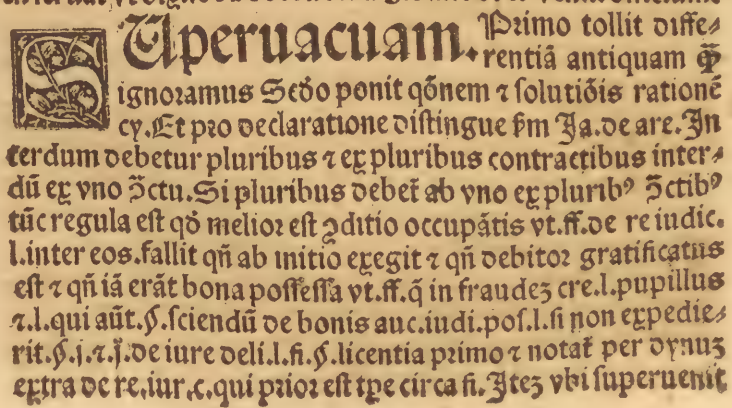 SUperuacuam. Primo tollit diffe⸗
rentiā antiquam ꝙ̄
ignoramus Scd̄o ponit qōnem ⁊ solutiōis rationē
cy. Et pro declaratione distingue ẜm Ja. de are. In
terdum debetur pluribus ⁊ ex pluribus contractibus inter⸗
dū ex vno ↄ̄ctu. Si pluribus debet̄ ab vno ex plurib⁹ ↄ̄ctib⁹
tūc regula est qd̄ melior est ↄditio occupātis vt. ff. de re iudic.
l. inter eos. fallit qn̄ ab initio exegit ⁊ qn̄ debitor gratificatus
est ⁊ qn̄ iā erāt bona possessa vt. ff. q̄ in fraudeʒ cre. l. pupillus
⁊. l. qui aūt. §. sciendū de bonis auc. iudi. pos. l. si non expedie⸗
rit. §. j. ⁊. ij. de iure deli. l. fi. §. licentia primo ⁊ notat̄ per dynuʒ
extra de re. iur. c. qui prior est tp̄e circa fi. Iteʒ vbi superuenit